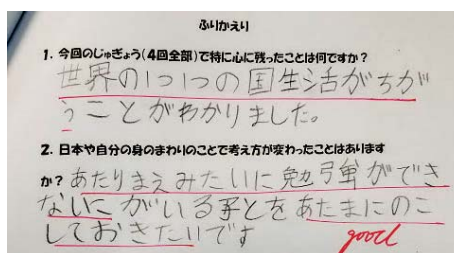 ふりかえり
1. 今回のじゅぎょう（4回全部）で特に心に残ったことは何ですか？
世界の1つ1つの国生活がちが
うことがわかりました。
2. 日本や自分の身のまわりのことで考え方が変わったことはあります
か？あたりまえみたいに勉強ができ
ないこがいる子とをあたまにのこ
しておきたいです
good